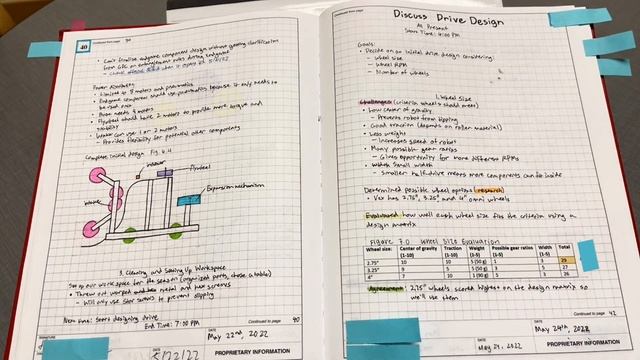 40
Continued from page
• Can't finalize endgame component design without getting clarification
from GDC on entanglement rules during endgame
- check official Q&A when it opens
Power Allotment:
• Limited to 8 motors and pneumatics
• Endgame component should use pneumatics because it only needs to
be used once
• Base needs 4 motors
• Flywheel should have 2 motors to provide more torque and
stability
• Intake can use 1 or 2 motors
- Provides flexibility for potential other components
Complete initial design Fig. 6.4
indexer
Flywheel
Intake
Expansion mechanism
3. Cleaning and Setting Up Workspace
Set up our workspace for the season (organized parts, chose a table)
• Threw out warped metal and hex screws
- Will only use star screws to prevent slipping
Next time: Start designing drive
End Time: 7:00 PM
Continued to page 40
DATE
May 22nd, 2022
5/22/22
PROPRIETARY INFORMATION
Continued from page
Discuss Drive Design
All Present
Start Time: 4:00 PM
Goals:
• Decide on an initial drive design considering:
- Wheel size
- Wheel RPM
- Number of wheels
1. Wheel Size
Challenges (criteria wheels should meet)
• Low center of gravity
- Prevents robot from tipping
• Good traction (depends on roller material)
• Less weight
- Increases speed of robot
• Many possible gear ratios
- Gives opportunity for more different RPMs
• Small width
- Smaller half-drive means more components can fit inside
Determined possible wheel options (research)
• Vex has 2.75", 3.25" and 4" omni wheels
Evaluated how well each wheel size fits the criterion using a
design matrix
Figure 7.0 Wheel Size Evaluation
Wheel size: Center of gravity (1-10) Traction (1-10) Weight (1-5) Possible gear ratios (1-3) Width (1-5) Total
2.75" 10 10 5 (50 g) 1 3 29
3.25" 9 5 (50 g) 3 5 27
4" 5 (50 g) 3 3 26
Agreement: 2.75" wheels scored highest on the design matrix so
we'll use them
Continued to page 42
DATE
May 24th, 2022
May 24, 2022
PROPRIETARY INFORMATION